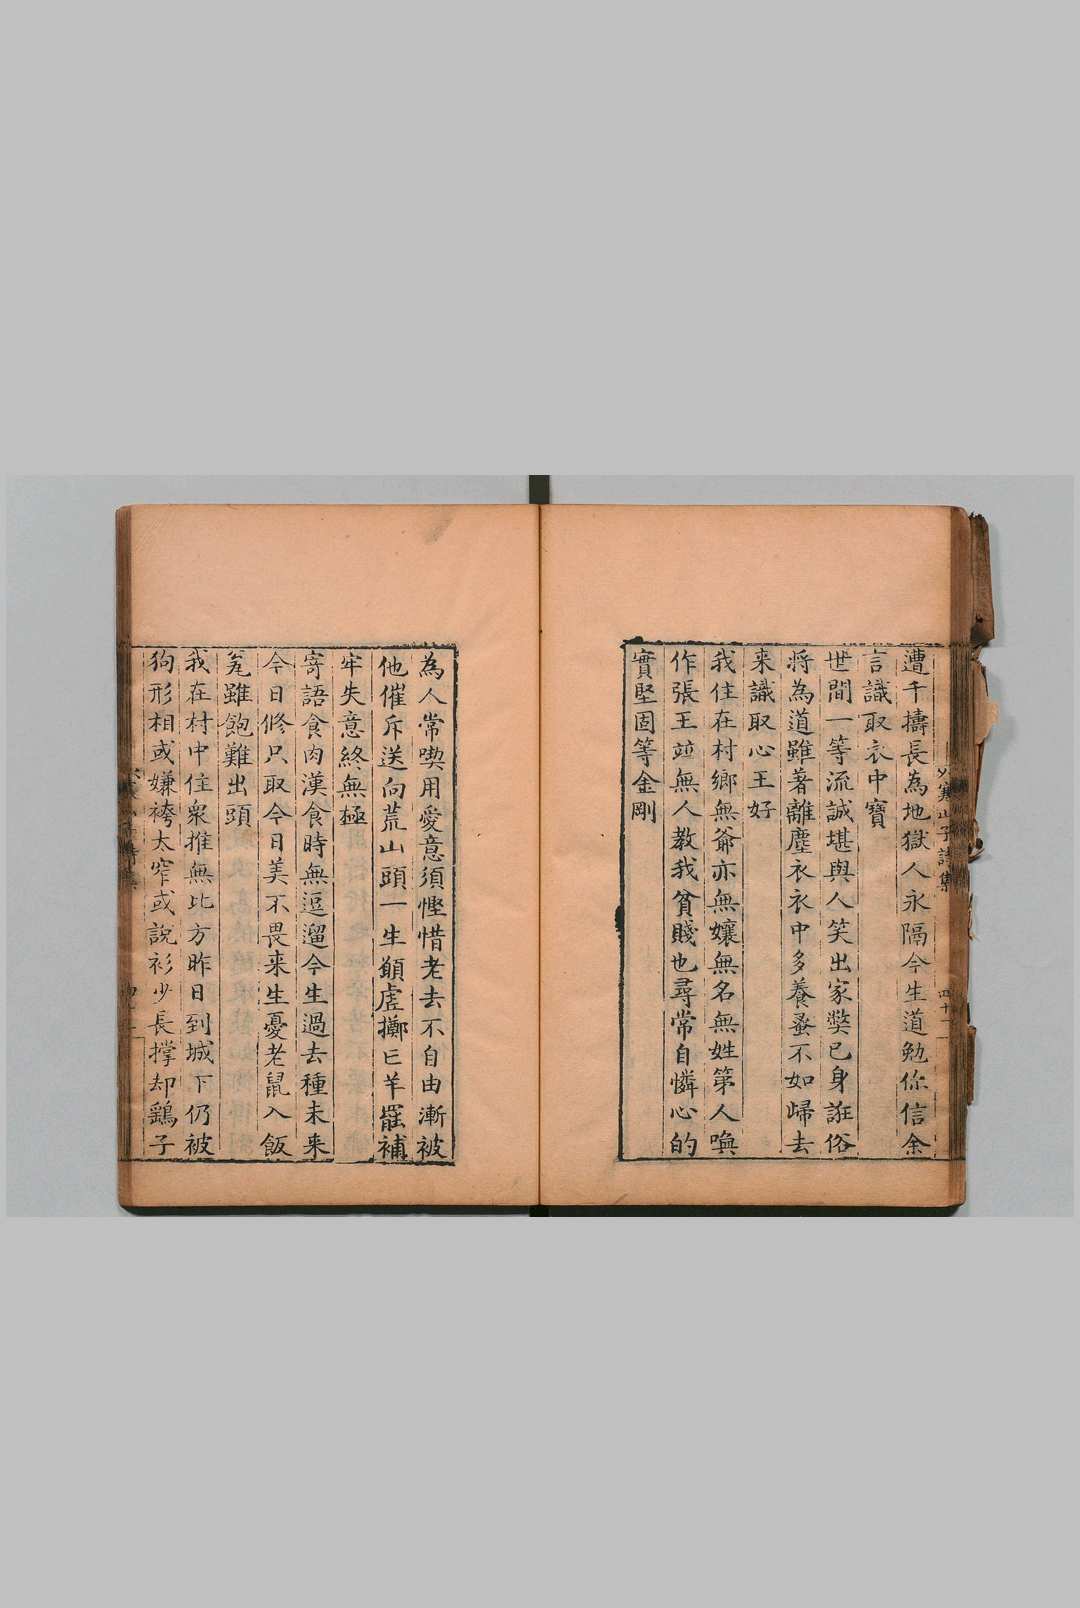 寒山子詩集
四十一
遭千擣長為地獄人永隔今生道勉你信余
言識取衣中寶
世間一等流誠堪與人笑出家獘已身誑俗
将為道雖著離塵衣衣中多養蚤不如歸去
来識取心王好
我住在村鄉無爺亦無孃無名無姓第人喚
作張王竝無人教我貧賤也尋常自憐心的
實堅固等金剛
為人常喫用愛意須慳惜老去不自由漸被
他催斥送向荒山頭一生願虗擲亾羊罷補
牢失意終無極
寄語食肉漢食時無逗遛今生過去種未来
今日修只取今日美不畏来生憂老鼠入飯
瓮雖飽難出頭
我在村中住衆推無比方昨日到城下仍被
狗形相或嫌袴太窄或説衫少長撑却鷂子